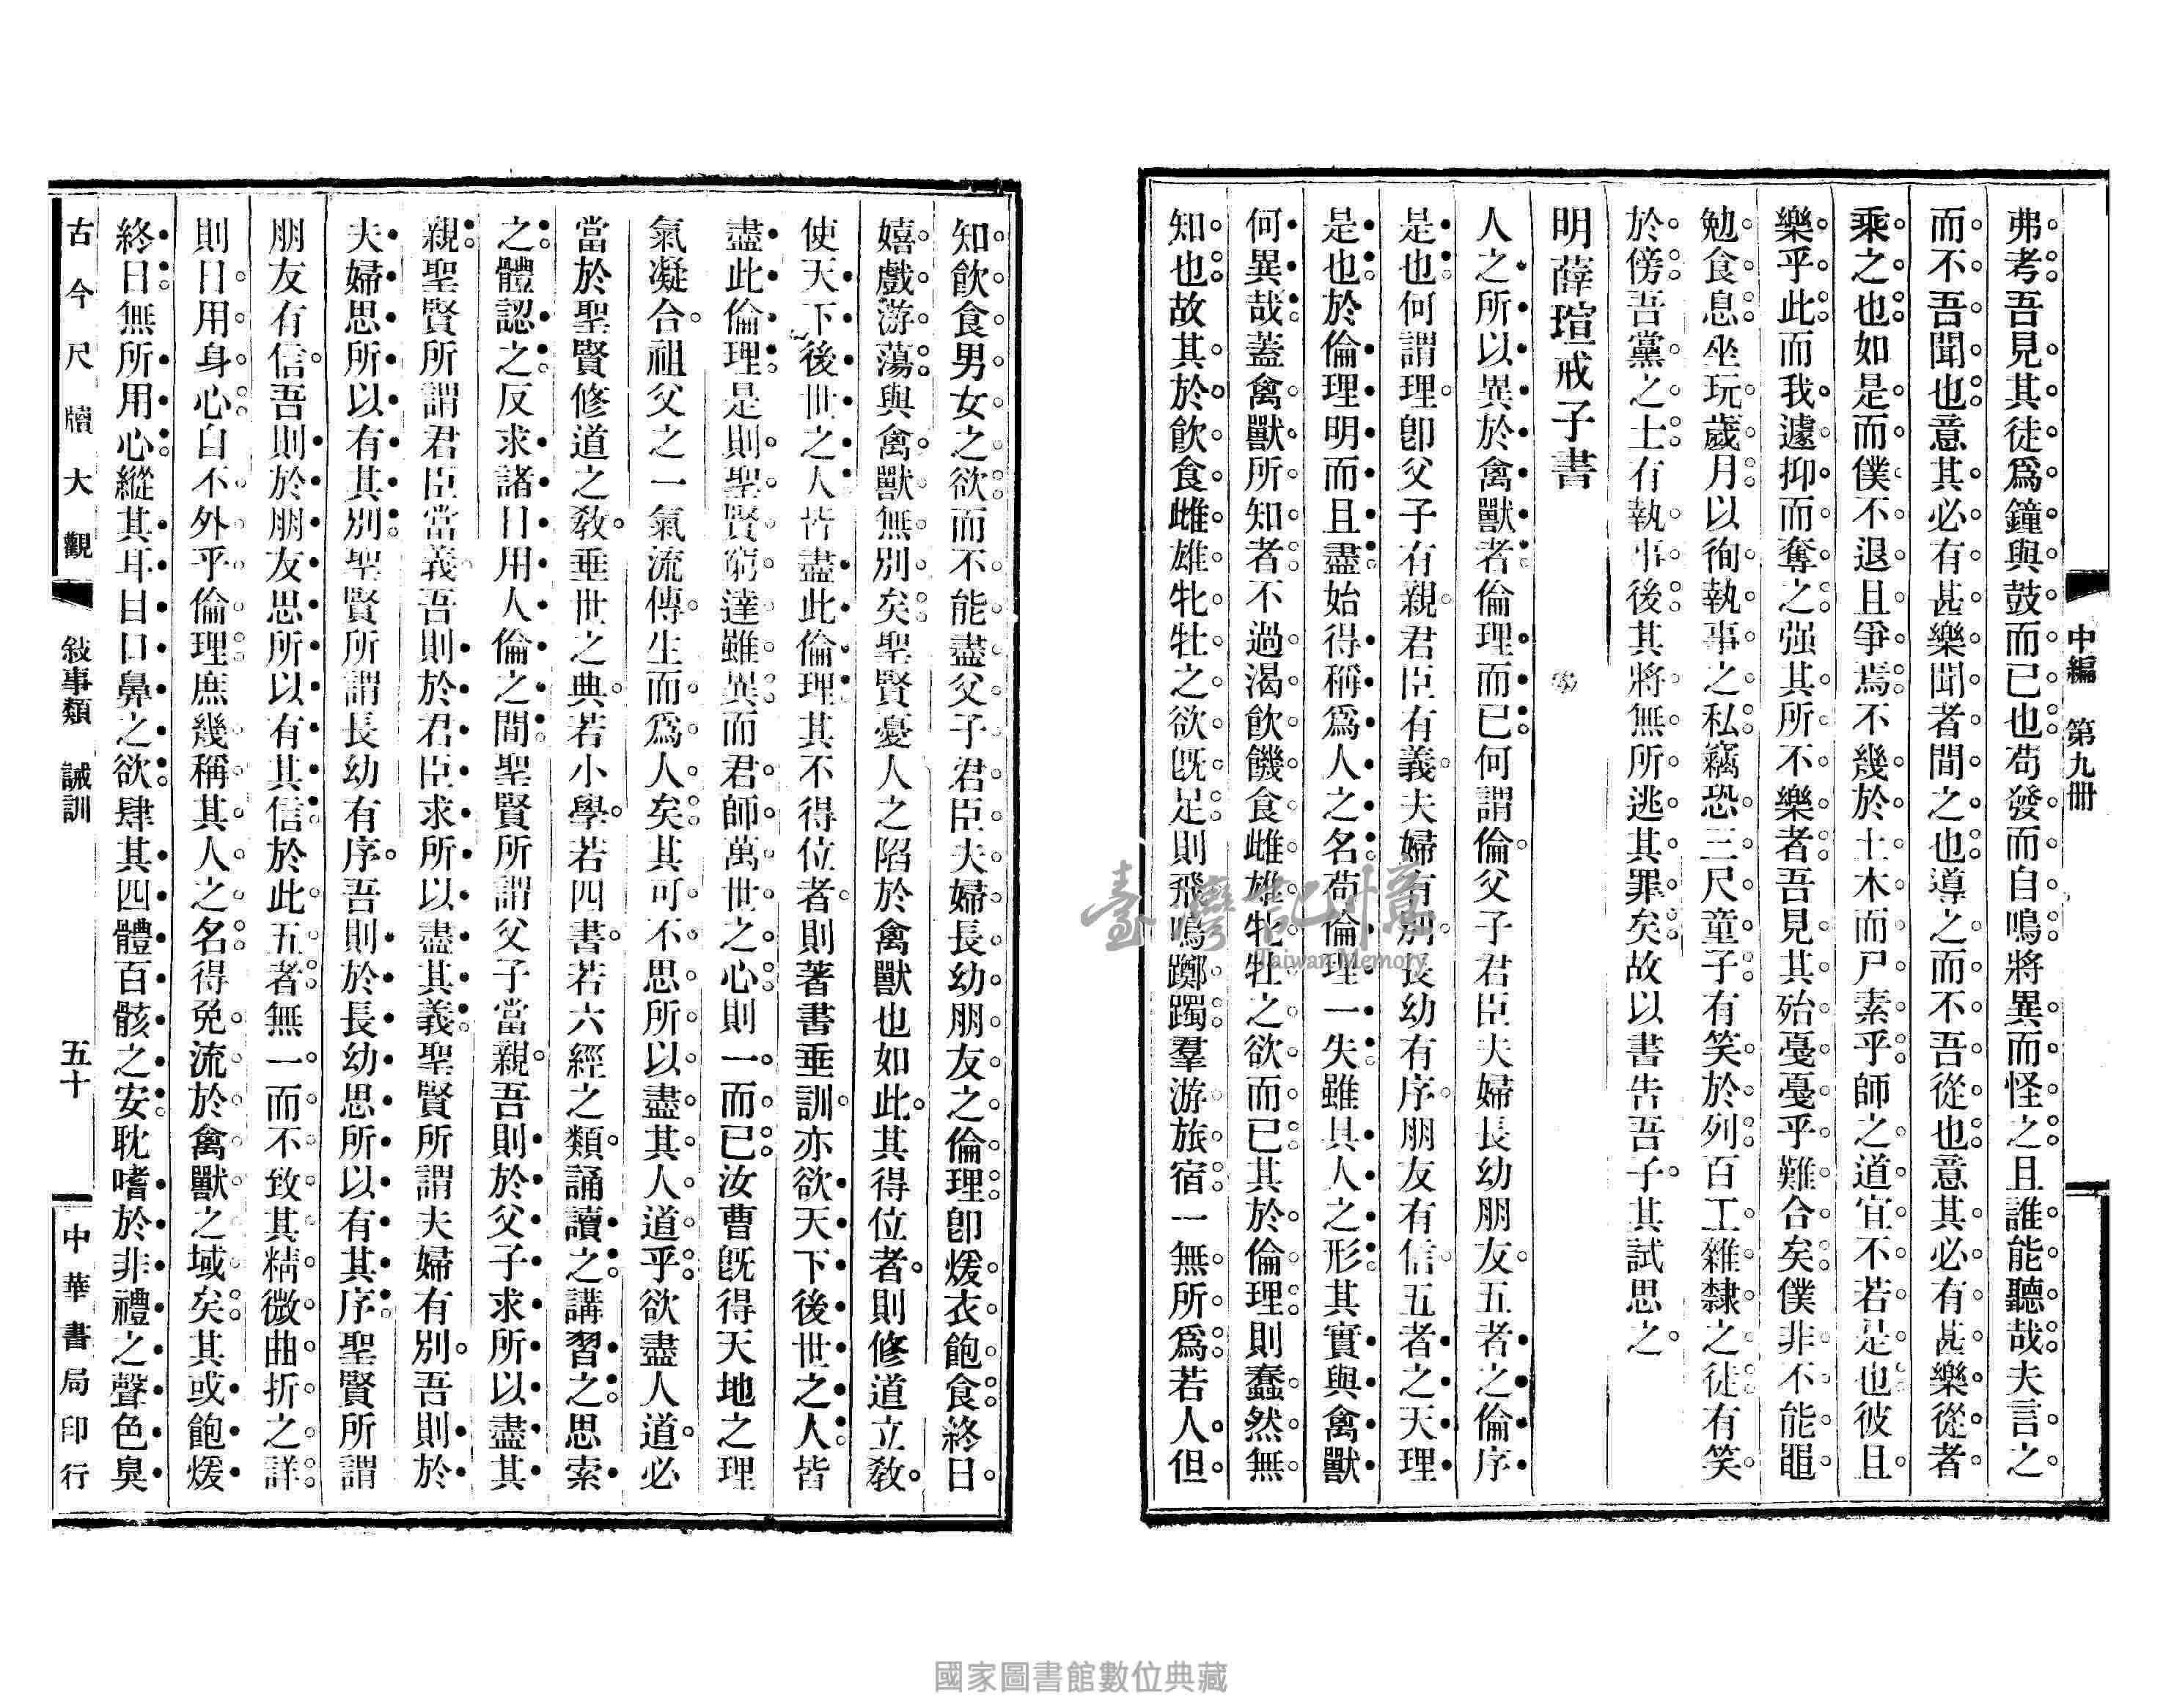 中編　第九冊
弗考吾見其徒爲鐘與鼓而已也苟發而自鳴將異而怪之且誰能聽哉夫言之
而不吾聞也意其必有甚樂聞者間之也導之而不吾從也意其必有甚樂從者
乘之也如是而僕不退且爭焉不幾於土木而尸素乎師之道宜不若是也彼且
樂乎此而我遽抑而奪之强其所不樂者吾見其殆戞戞乎難合矣僕非不能黽
勉食息坐玩歲月以徇執事之私竊恐三尺童子有笑於列百工雜隸之徒有笑
於傍吾黨之士有執事後其將無所逃其罪矣故以書告吾子其試思之
明薛瑄戒子書
人之所以異於禽獸者倫理而已何謂倫父子君臣夫婦長幼朋友五者之倫序
是也何謂理卽父子有親君臣有義夫婦有別長幼有序朋友有信五者之天理
是也於倫理明而且盡始得稱爲人之名苟倫理一失雖具人之形其實與禽獸
何異哉蓋禽獸所知者不過渴飲饑食雌雄牝牡之欲而已其於倫理則蠢然無
知也故其於飮食雌雄牝牡之欲旣足則飛鳴躑躅羣游旅宿一無所爲若人但
知飮食男女之欲而不能盡父子君臣夫婦長幼朋友之倫理卽煖衣飽食終日
嬉戲游蕩與禽獸無別矣聖賢憂人之陷於禽獸也如此其得位者則修道立敎
使天下後世之人皆盡此倫理其不得位者則著書垂訓亦欲天下後世之人皆
盡此倫理是則聖賢窮達雖異而君師萬世之心則一而已汝曹旣得天地之理
氣凝合祖父之一氣流傳生而爲人矣其可不思所以盡其人道乎欲盡人道必
當於聖賢修道之敎垂世之典若小學若四書若六經之類誦讀之講習之思索
之體認之反求諸日用人倫之間聖賢所謂父子當親吾則於父子求所以盡其
親聖賢所謂君臣當義吾則於君臣求所以盡其義聖賢所謂夫婦有別吾則於
夫婦思所以有其別聖賢所謂長幼有序吾則於長幼思所以有其序聖賢所謂
朋友有信吾則於朋友思所以有其信於此五者無一而不致其精微曲折之詳
則日用身心自不外乎倫理庶幾稱其人之名得免流於禽獸之域矣其或飽煖
終日無所用心縱其耳目口鼻之欲肆其四體百骸之安耽嗜於非禮之聲色臭
古今尺牘大觀　敍事類　誡訓　五十　中華書局印行
臺灣記憶
Taiwan Memory
國家圖書館數位典藏